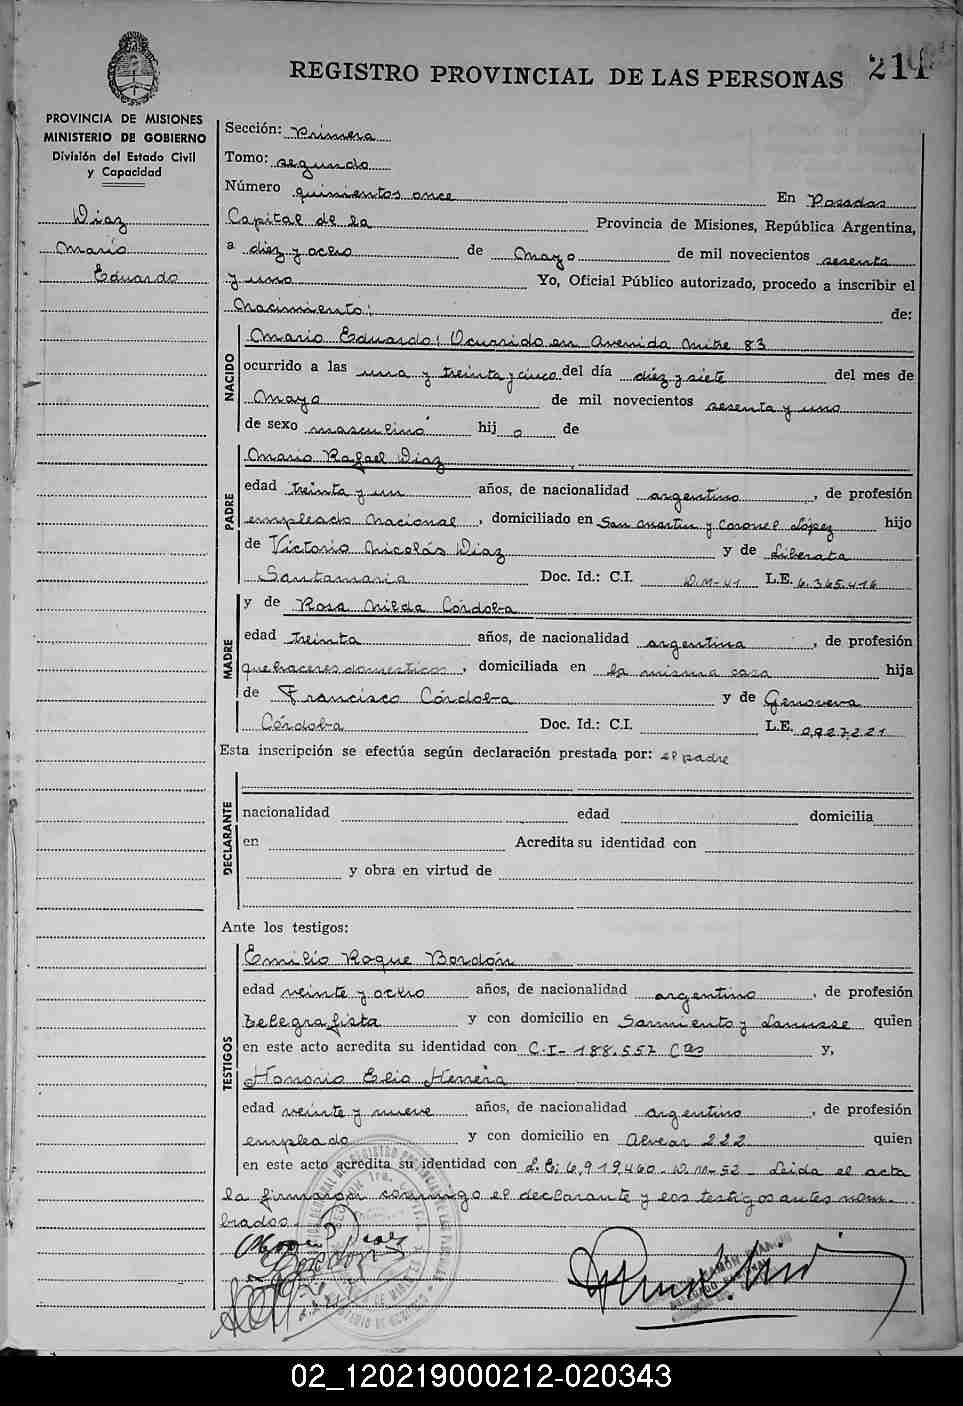 REGISTRO PROVINCIAL DE LAS PERSONAS
211
PROVINCIA DE MISIONES
MINISTERIO DE GOBIERNO
División del Estado Civil
y Capacidad
Diaz
Mario
Eduardo
Sección: Primera
Tomo: segundo
Número quinientos once En Posadas
Capital de la Provincia de Misiones, República Argentina,
a diez y ocho de Mayo de mil novecientos sesenta
y uno Yo, Oficial Público autorizado, procedo a inscribir el
Nacimiento: de:
NACIDO
Mario Eduardo; Ocurrido en Avenida Mitre 83
ocurrido a las una y treinta y cinco del día diez y siete del mes de
Mayo de mil novecientos sesenta y uno
de sexo masculino hij o de
PADRE
Mario Rafael Diaz
edad treinta y un años, de nacionalidad argentino, de profesión
empleado Nacional, domiciliado en San Martin y Coronel López hijo
de Victorio Nicolás Diaz y de Liberata
Santamaria Doc. Id.: C.I. D.M-41 L.E. 6.365.416
MADRE
y de Rosa Nilda Córdoba
edad treinta años, de nacionalidad argentina, de profesión
quehaceres domesticos, domiciliada en la misma casa hija
de Francisco Córdoba y de Genoveva
Córdoba Doc. Id.: C.I. L.E. 0,927.221
Esta inscripción se efectúa según declaración prestada por: el padre
DECLARANTE
nacionalidad edad domicilia
en Acredita su identidad con
y obra en virtud de
Ante los testigos:
TESTIGOS
Emilio Roque Bordón
edad veinte y ocho años, de nacionalidad argentino, de profesión
telegrafista y con domicilio en Sarmiento y Lanusse quien
en este acto acredita su identidad con C.I- 188.557 Ctes y,
Honorio Elio Herrera
edad veinte y nueve años, de nacionalidad argentino, de profesión
empleado y con domicilio en Alvear 222 quien
en este acto acredita su identidad con L.E; 6,919,460-D.M-52 - Leida el acta
la firmaron conmigo el declarante y los testigos antes nom-
brados.
02_120219000212-020343